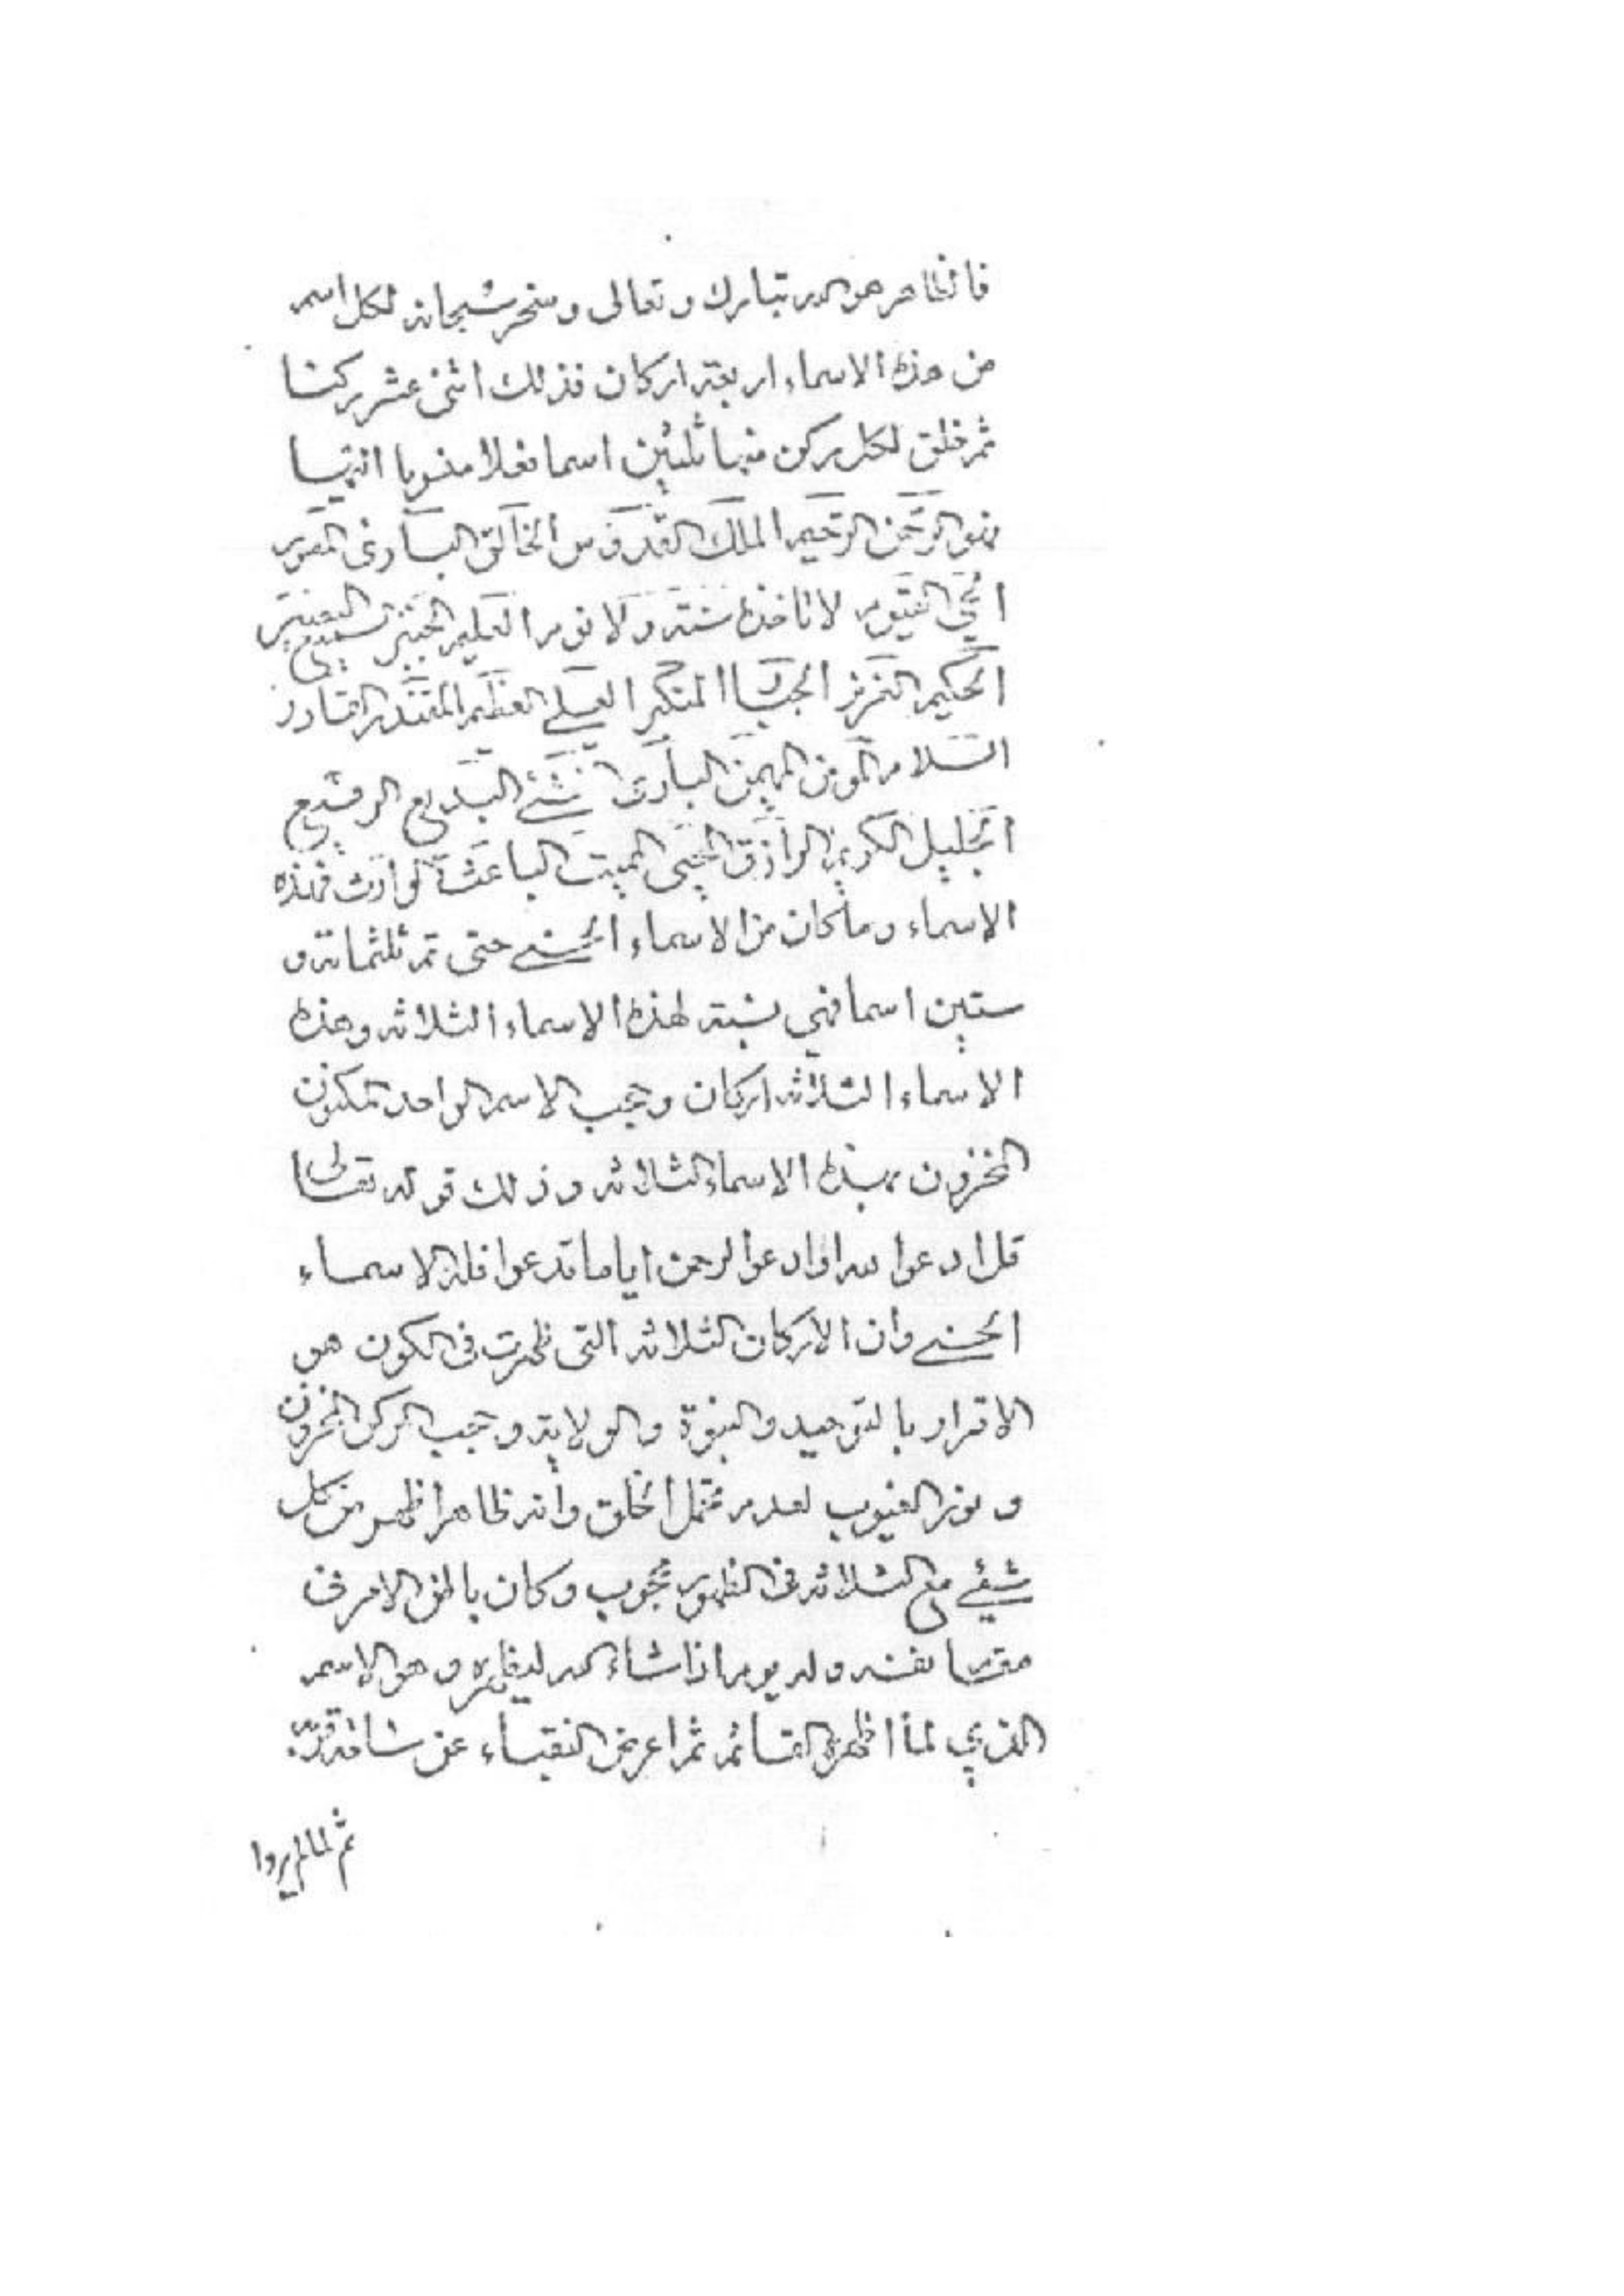 فالظاهر هو الله تبارك وتعالى وسخر سبحانه لكل اسم
من هذه الاسماء اربعة اركان فذلك اثنى عشر ركنا
ثم خلق لكل ركن منها ثلثين اسما فعلا منسوبا اليها
فهو الرحمن الرحيم الملك القدوس الخالق البارئ المصور
الحي القيوم لا تاخذه سنة ولا نوم العليم الخبير السميع البصير
الحكيم العزيز الجبار المتكبر العلي العظيم المقتدر القادر
السلام المؤمن المهيمن البارئ المنشئ البديع الرفيع
الجليل الكريم الرازق المحيي المميت الباعث الوارث فهذه
الاسماء وما كان من الاسماء الحسنى حتى تم ثلثماته و
ستين اسما فهي نسبة لهذه الاسماء الثلاثه وهذه
الاسماء الثلاثه اركان وحجب الاسم الواحد المكنون
المخزون بهذه الاسماء الثلاثه وذلك قوله تعالى
قل ادعوا الله او ادعوا الرحمن اياما تدعوا فله الاسماء
الحسنى وان الاركان الثلاثه التى ظهرت فى الكون هو
الاقرار بالتوحيد والنبوة والولاية وحجب الركن المخزون
و الغيوب لعدم تحمل الخلق وانه ظاهرا ظهر من كل
شيئ مع الثلاثه فى الظهور محجوب وكان باطن الامر فى
نفسه وله يوم اذا شاء الله ليظهره وهو الاسم
الذي لما اظهره القائم ثم اعرض النقباء عن
ثم لما لم يروا